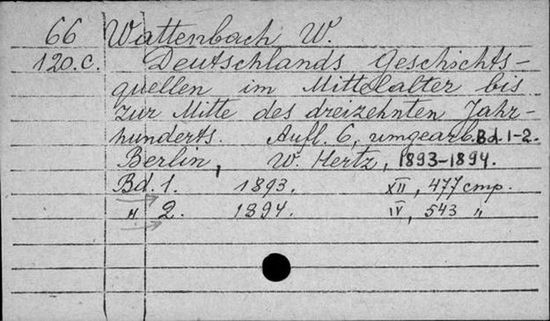 66 Wattenbach W.
120.C. Deutschlands Geschichts-
quellen im Mittelalter bis
zur Mitte des dreizehnten Jahr-
hunderts. Aufl. 6, umgearb. Bd. 1-2.
Berlin, W. Hertz, 1893-1894.
Bd. 1. 1893. XII, 477 стр.
" 2. 1894. IV, 543 "